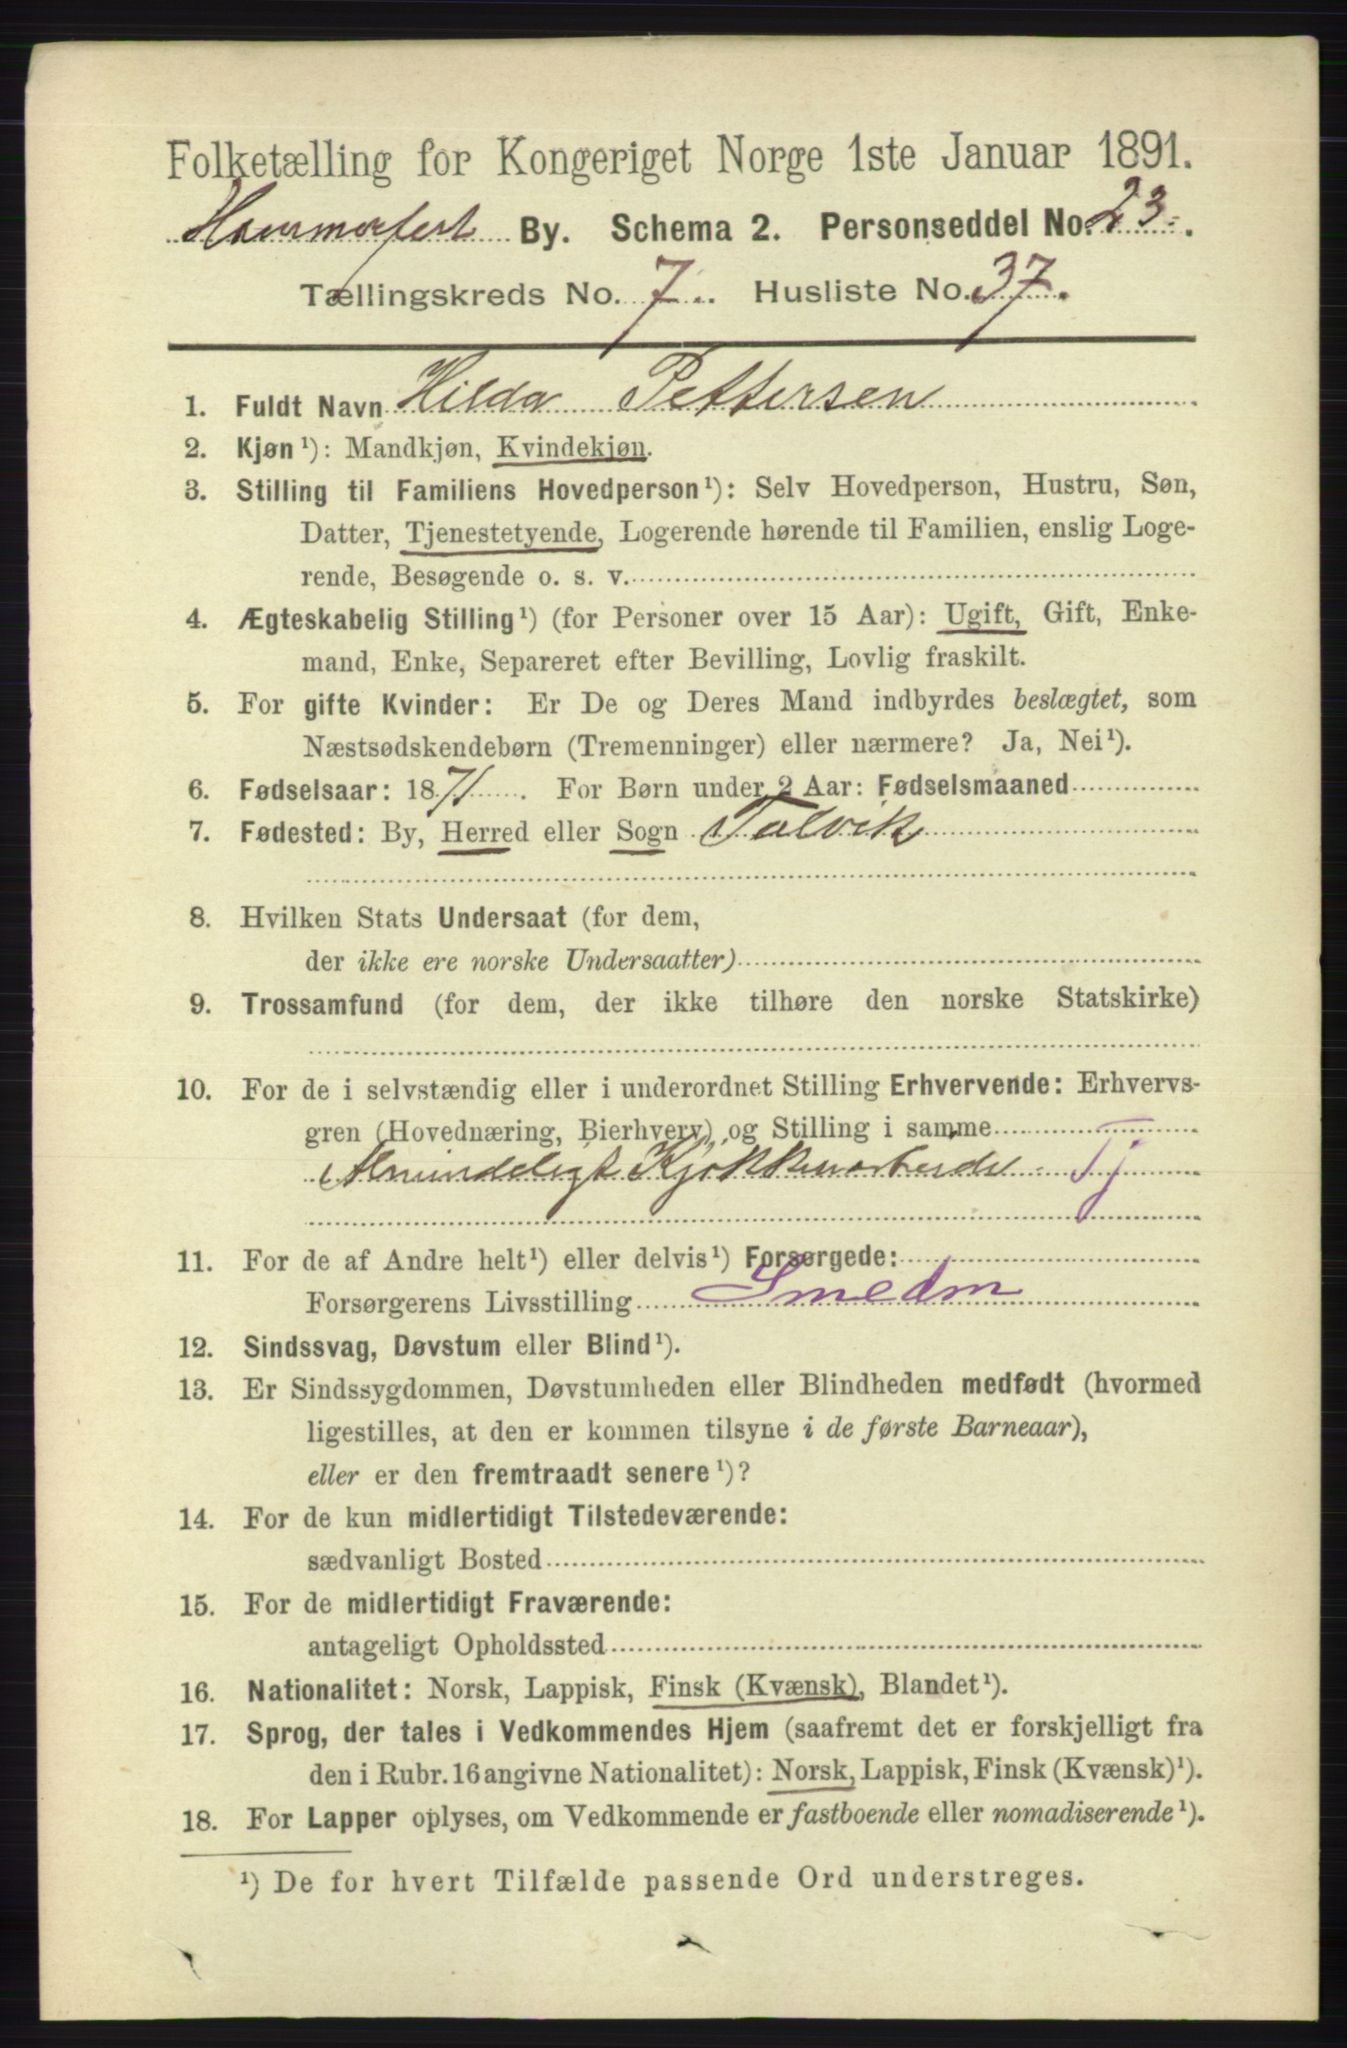 Folketælling for Kongeriget Norge 1ste Januar 1891.
Hammerfest By. Schema 2. Personseddel No. 23.
Tællingskreds No. 7. Husliste No. 37.
1. Fuldt Navn Hilda Pettersen
2. Kjøn¹): Mandkjøn, Kvindekjøn.
3. Stilling til Familiens Hovedperson¹): Selv Hovedperson, Hustru, Søn,
Datter, Tjenestetyende, Logerende hørende til Familien, enslig Loge-
rende, Besøgende o. s. v.
4. Ægteskabelig Stilling¹) (for Personer over 15 Aar): Ugift, Gift, Enke-
mand, Enke, Separeret efter Bevilling, Lovlig fraskilt.
5. For gifte Kvinder: Er De og Deres Mand indbyrdes beslægtet, som
Næstsødskendebørn (Tremenninger) eller nærmere? Ja, Nei¹).
6. Fødselsaar: 1871. For Børn under 2 Aar: Fødselsmaaned
7. Fødested: By, Herred eller Sogn Talvik
8. Hvilken Stats Undersaat (for dem,
der ikke ere norske Undersaatter)
9. Trossamfund (for dem, der ikke tilhøre den norske Statskirke)
10. For de i selvstændig eller i underordnet Stilling Erhvervende: Erhvervs-
gren (Hovednæring, Bierhverv) og Stilling i samme
Almindeligt Kjøkkenarbeide Tj
11. For de af Andre helt¹) eller delvis¹) Forsørgede:
Forsørgerens Livsstilling Smedm
12. Sindssvag, Døvstum eller Blind¹).
13. Er Sindssygdommen, Døvstumheden eller Blindheden medfødt (hvormed
ligestilles, at den er kommen tilsyne i de første Barneaar),
eller er den fremtraadt senere¹)?
14. For de kun midlertidigt Tilstedeværende:
sædvanligt Bosted
15. For de midlertidigt Fraværende:
antageligt Opholdssted
16. Nationalitet: Norsk, Lappisk, Finsk (Kvænsk), Blandet¹).
17. Sprog, der tales i Vedkommendes Hjem (saafremt det er forskjelligt fra
den i Rubr. 16 angivne Nationalitet): Norsk, Lappisk, Finsk (Kvænsk)¹).
18. For Lapper oplyses, om Vedkommende er fastboende eller nomadiserende¹).
¹) De for hvert Tilfælde passende Ord understreges.